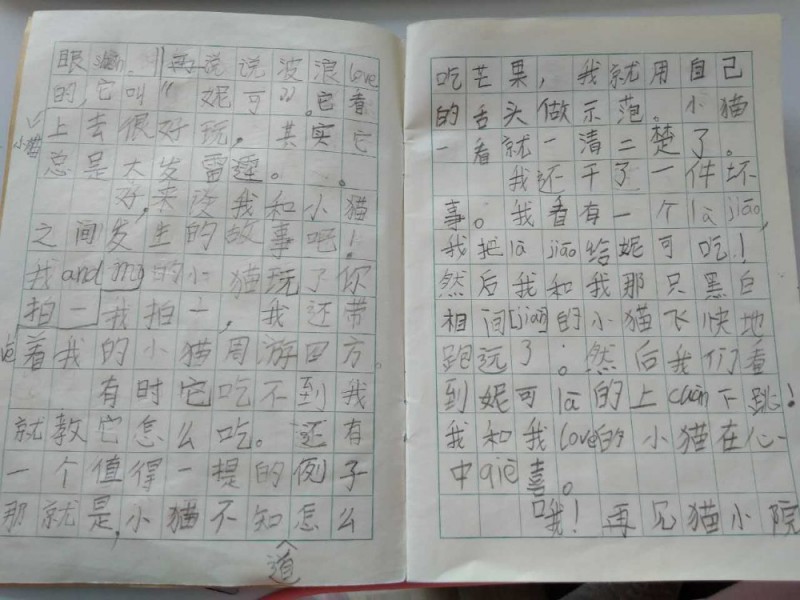 眼 . 再说说波浪love
的,它叫“妮可”。它看
小猫
上去很好玩,其实它
总是大发雷霆。
好,来说我和小猫
之间发生的故事吧!
我and my的小猫玩了你
拍一我拍一,我还带
着我的小猫周游四方。
有时它吃不到我
就教它怎么吃。还有
一个值得一提的例子
那就是,小猫不知怎么
道
吃芒果,我就用自己
的舌头做示范。小猫
一看就一清二楚了。
我还干了一件坏
事。我看有一个là jiāo,
我把là jiāo给妮可吃!
然后我和我那只黑白
相间[jiàn]的小猫飞快地
跑远了。然后我们看
到妮可là的上cuān下跳!
我和我love的小猫在心
中qiè喜。
哦!再见猫小院